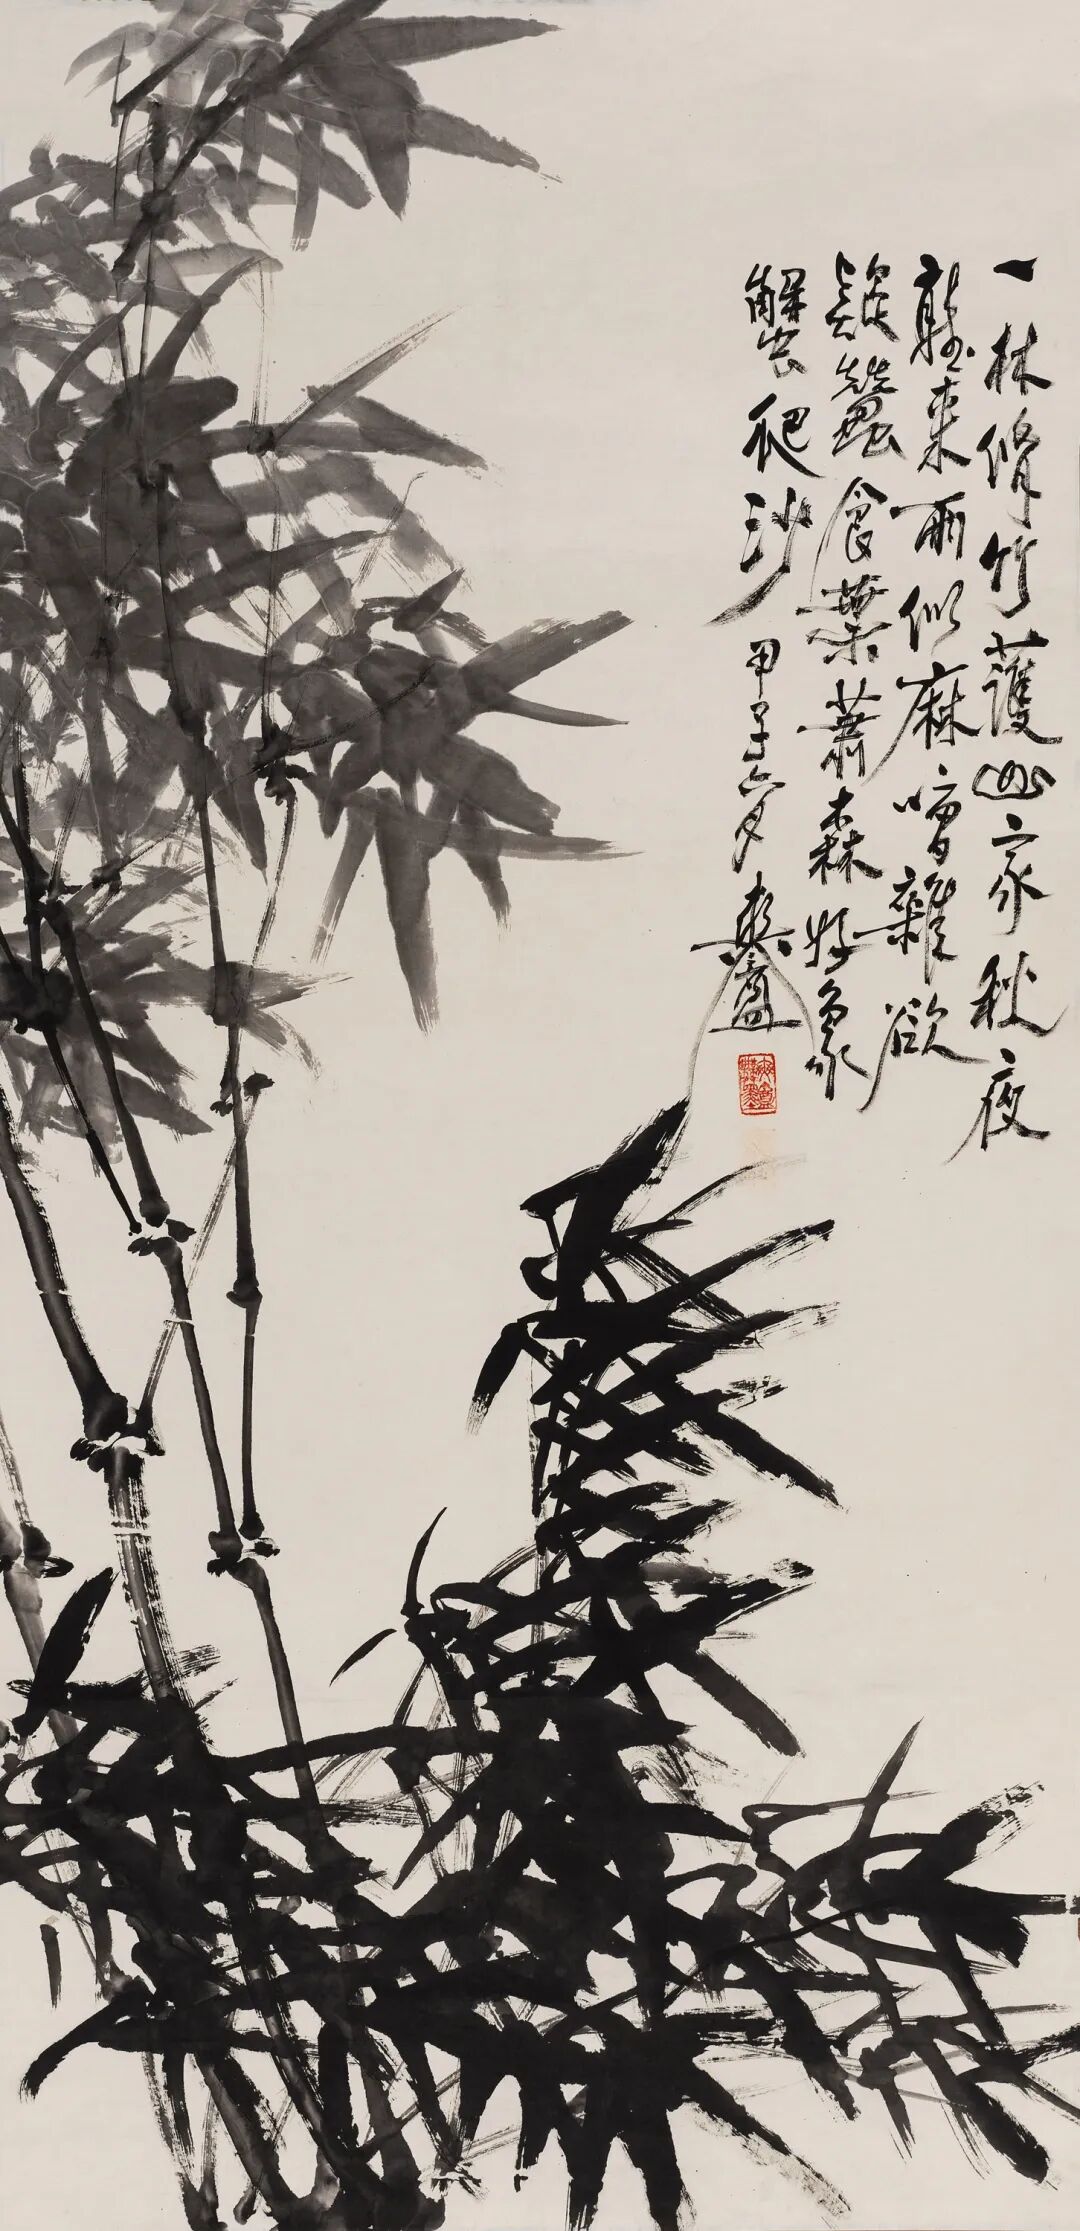 一林脩竹護山家秋夜
聽來雨似麻嘈雜欲
疑蠶食葉蕭森好象
蟹爬沙
甲子六月